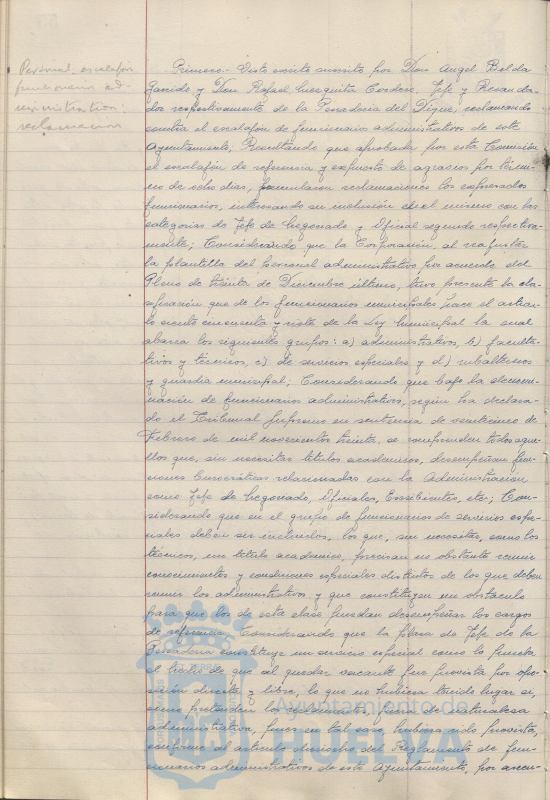 Personal, escalafón
funcionarios ad-
ministrativos:
reclamación
Primero.- Visto escrito suscrito por Don Angel Belda
Garrido y Don Rafael Mezquita Cordero, Jefe y Recauda-
dor respectivamente de la Pescadería del Dique, reclamando
contra el escalafón de funcionarios administrativos de este
Ayuntamiento; Resultando que aprobado por esta Comisión
el escalafón de referencia y expuesto de agravios por térmi-
no de ocho días, formularon reclamaciones los expresados
funcionarios, interesando su inclusión en el mismo con las
categorías de Jefe de Negociado y Oficial segundo respectiva-
mente; Considerando que la Corporación, al reajustar
la plantilla del personal administrativo, por acuerdo del
Pleno de treinta de Diciembre último, tuvo presente la cla-
sificación que de los funcionarios municipales hace el artícu-
lo ciento cincuenta y siete de la Ley Municipal la cual
abarca los siguientes grupos: a) administrativos, b) faculta-
tivos y técnicos, c) de servicios especiales y d) subalternos
y guardia municipal; Considerando que bajo la denomi-
nación de funcionarios administrativos, según ha declara-
do el Tribunal Supremo en sentencia de veinticinco de
Febrero de mil novecientos treinta, se comprenden todos aque-
llos que, sin necesitar títulos académicos, desempeñan fun-
ciones burocráticas relacionadas con la Administración
como Jefe de Negociado, Oficiales, Escribientes, etc; Con-
siderando que en el grupo de funcionarios de servicios espe-
ciales deben ser incluidos, los que, sin necesitar, como los
técnicos, un título académico, precisan no obstante reunir
conocimientos y condiciones especiales distintos de los que deben
reunir los administrativos y que constituyen un obstáculo
para que los de esta clase puedan desempeñar los cargos
de referencia; Considerando que la plaza de Jefe de la
Pescadería constituye un servicio especial como lo prueba
el hecho de que al quedar vacante fue provista por opo-
sición directa y libre, lo que no hubiera tenido lugar si,
como pretenden los reclamantes, fuera de naturaleza
administrativa, pues en tal caso, hubiera sido provista,
conforme al artículo dieciocho del Reglamento de fun-
cionarios administrativos de este Ayuntamiento, por ascen-
Ayuntamiento de
HUELVA